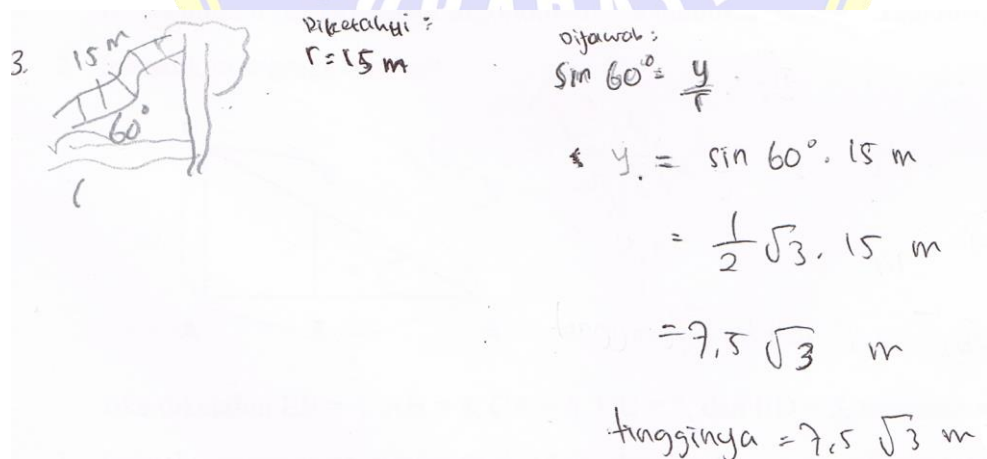 3.
15 m
60°
Diketahui :
r = 15 m
Dijawab :
sin 60° = y/r
y. = sin 60° . 15 m
= 1/2 √3 . 15 m
= 7,5 √3 m
tingginya = 7,5 √3 m